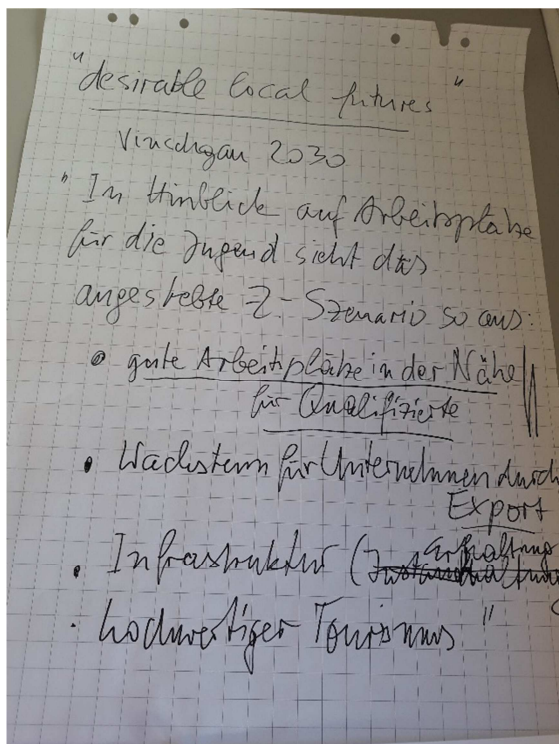 "desirable local futures"
Vinschgau 2030
"In Hinblick auf Arbeitsplätze
für die Jugend sieht das
angestrebte Z-Szenario so aus:
• gute Arbeitsplätze in der Nähe
für Qualifizierte
• Wachstum für Unternehmen durch
Export
• Infrastruktur (
Erhaltung
• hochwertiger Tourismus"